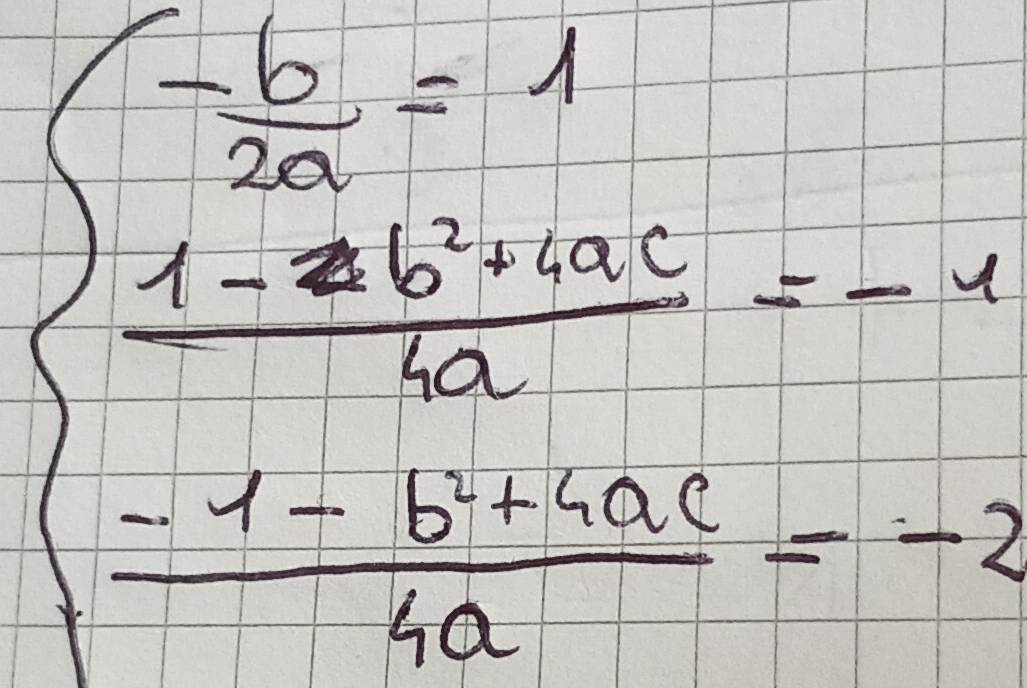 -b/2a = 1
1 - b²+4ac/4a = - 1
- 1 - b²+4ac/4a = - 2